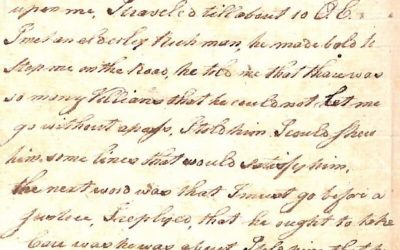 upon me, I traveled till about 10 O.C.
I met an elderly Rich man, he made bold to
stop me on the Road, he told me that thare was
so many Villians that he could not Let me
go without a pass, I told him, I could shew
him, some lines that would sattisfy him,
the next word was that I must go before a
Justice, I replyed, that he ought to take
Care was he was about, I told him that